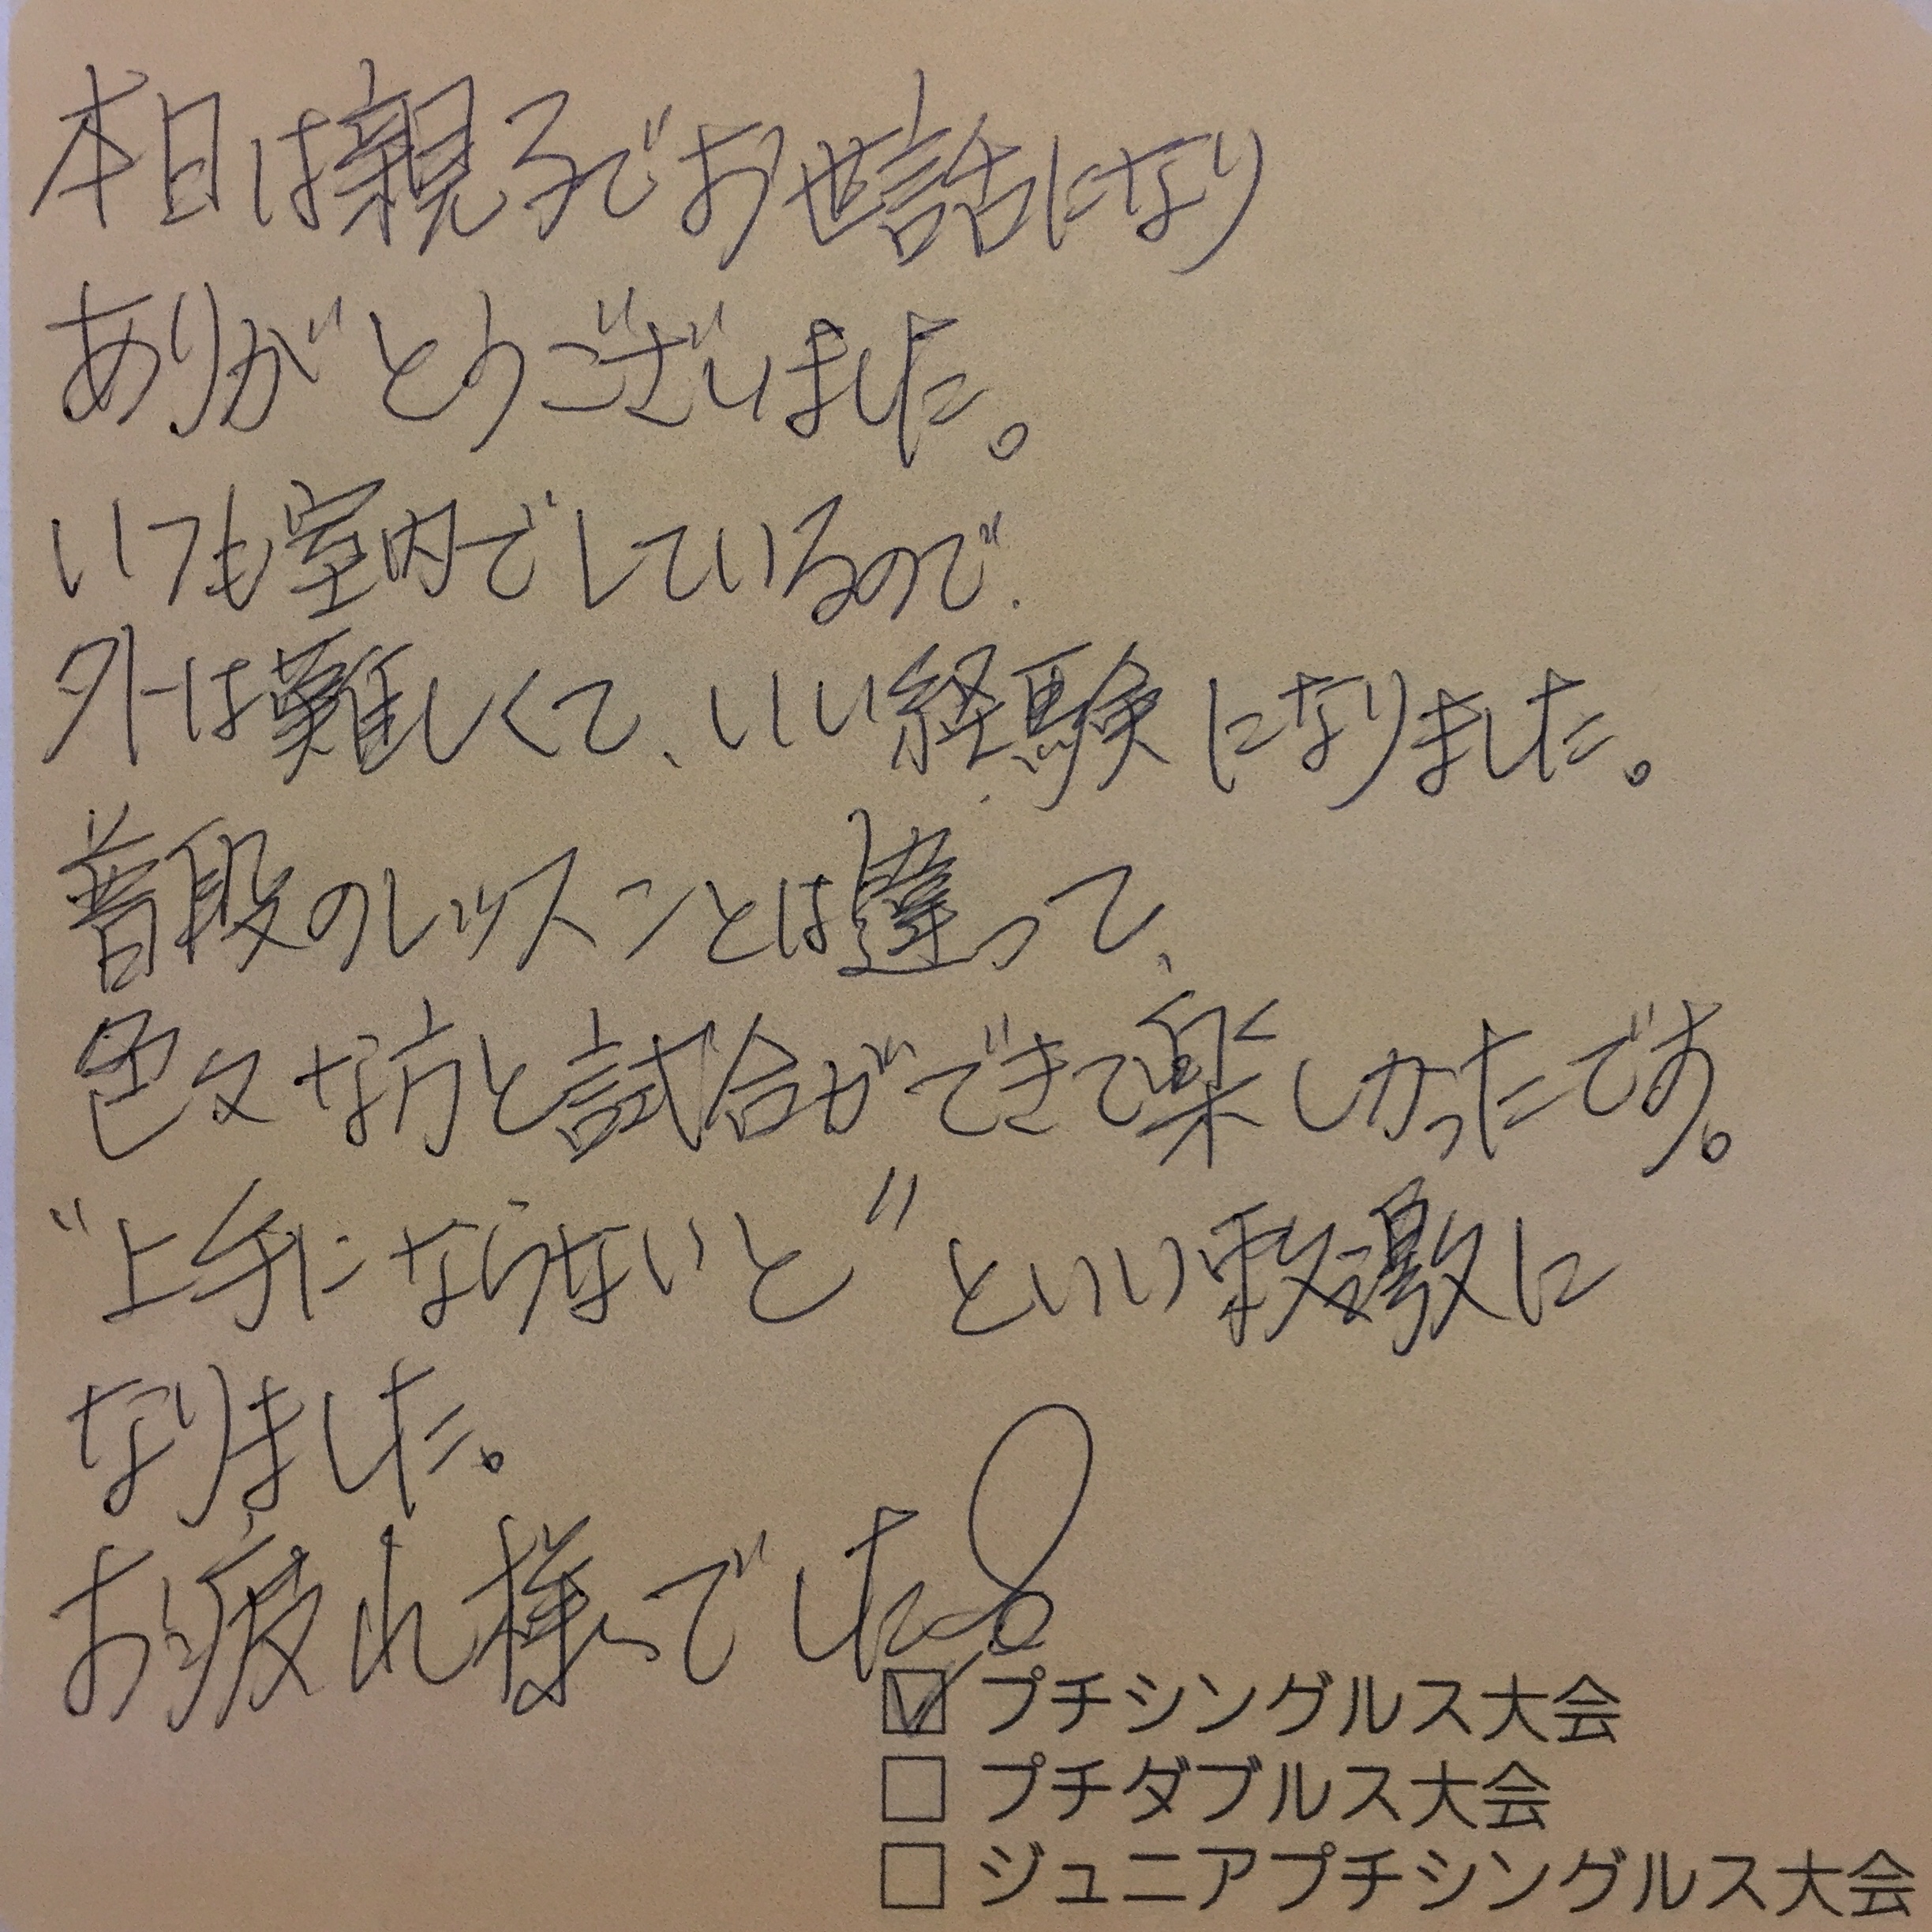 本日は親子でお世話になり
ありがとうございました。
いつも室内でしているので、
外は難しくて、いい経験になりました。
普段のレッスンとは違って、
色々な方と試合ができて楽しかったです。
“上手にならないと”といい刺激に
なりました。
お疲れ様でした。
☑ プチシングルス大会
☐ プチダブルス大会
☐ ジュニアプチシングルス大会